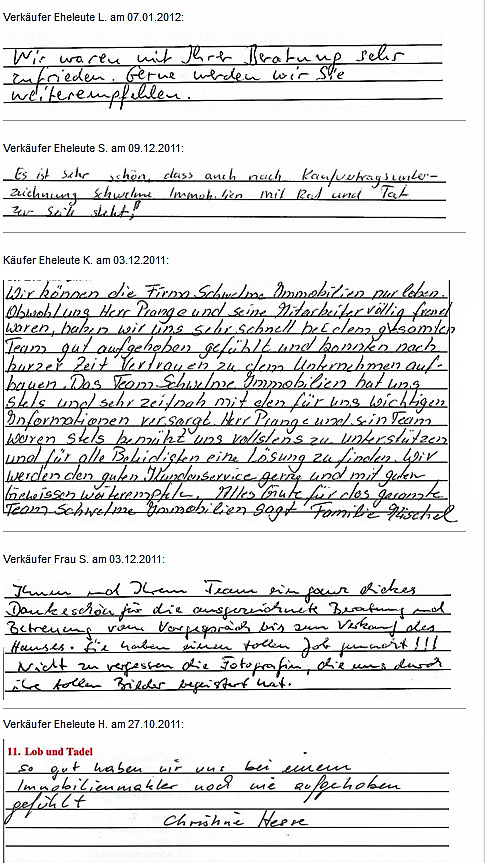 Verkäufer Eheleute L. am 07.01.2012:
Wir waren mit Ihrer Beratung sehr
zufrieden. Gerne werden wir Sie
weiterempfehlen.
Verkäufer Eheleute S. am 09.12.2011:
Es ist sehr schön, dass auch nach Kaufvertragsunter-
zeichnung Schwelme Immobilien mit Rat und Tat
zur Seite steht!
Käufer Eheleute K. am 03.12.2011:
Wir können die Firma Schwelme Immobilien nur loben.
Obwohl uns Herr Prange und seine Mitarbeiter völlig fremd
waren, haben wir uns sehr schnell bei dem gesamten
Team gut aufgehoben gefühlt und konnten nach
kurzer Zeit Vertrauen zu dem Unternehmen auf-
bauen. Das Team Schwelme Immobilien hat uns
stets und sehr zeitnah mit den für uns wichtigen
Informationen versorgt. Herr Prange und sein Team
waren stets bemüht uns vollstens zu unterstützen
und für alle Beteiligten eine Lösung zu finden. Wir
werden den guten Kundenservice gerne und mit guten
Gewissen weiterempfehlen. Alles Gute für das gesamte
Team Schwelme Immobilien sagt Familie
Verkäufer Frau S. am 03.12.2011:
Ihnen und Ihrem Team ein ganz dickes
Dankeschön für die ausgezeichnete Beratung und
Betreuung vom Vorgespräch bis zum Verkauf des
Hauses. Sie haben einen tollen Job gemacht!!!
Nicht zu vergessen die Fotografin, die uns durch
ihre tollen Bilder begeistert hat.
Verkäufer Eheleute H. am 27.10.2011:
11. Lob und Tadel
so gut haben wir uns bei einem
Immobilienmakler noch nie aufgehoben
gefühlt
Christine Heese